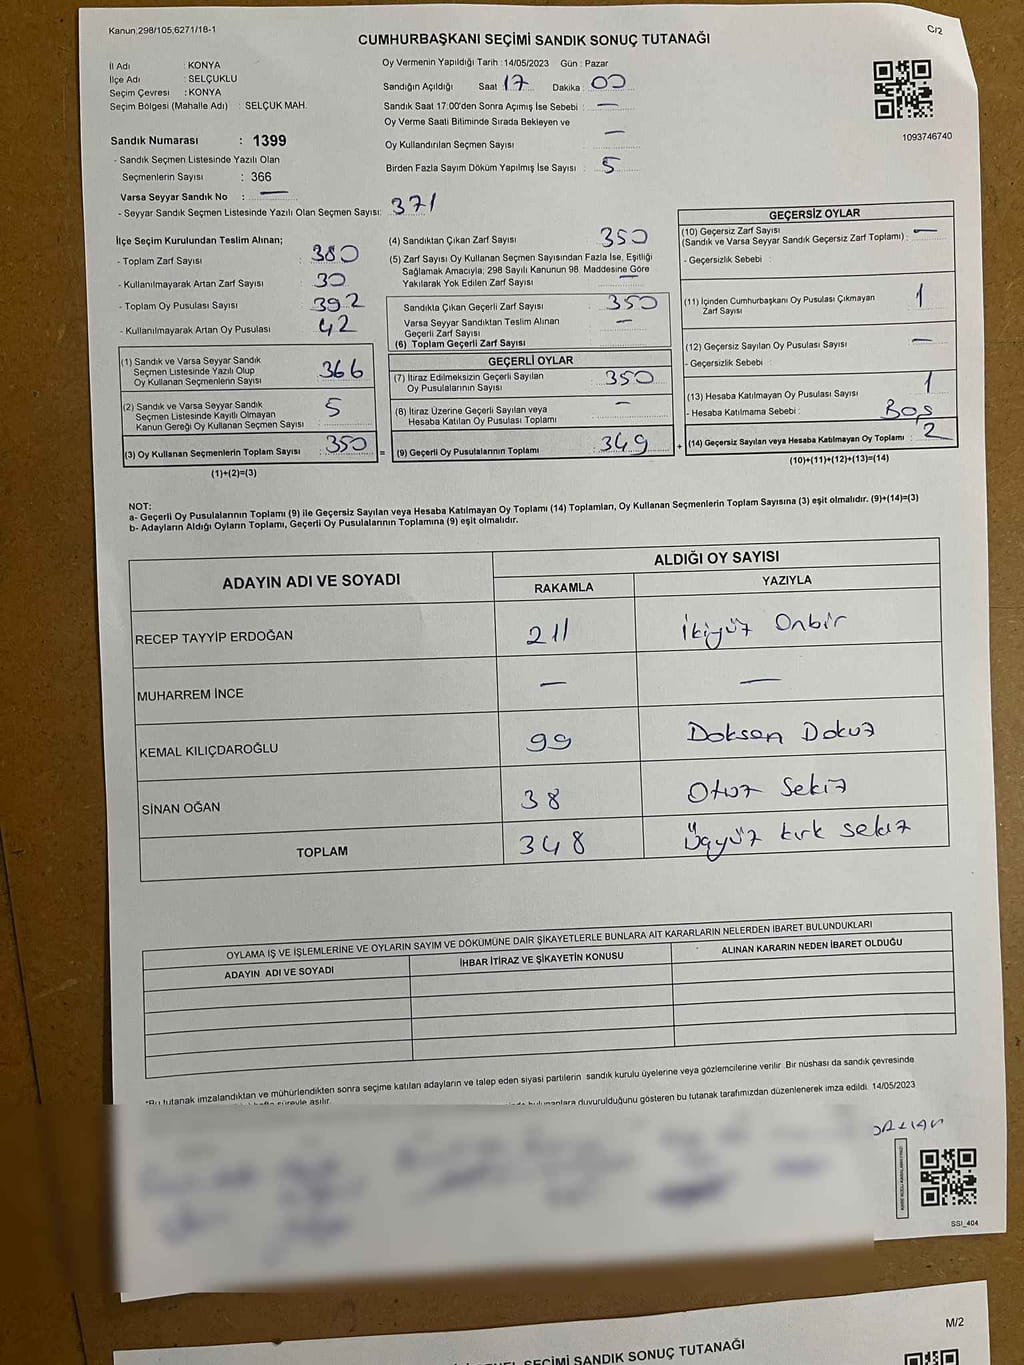 Kanun,298/105,6271/18-1
C/2
CUMHURBAŞKANI SEÇİMİ SANDIK SONUÇ TUTANAĞI
İl Adı : KONYA
İlçe Adı : SELÇUKLU
Seçim Çevresi : KONYA
Seçim Bölgesi (Mahalle Adı) : SELÇUK MAH.
Oy Vermenin Yapıldığı Tarih : 14/05/2023 Gün : Pazar
Sandığın Açıldığı Saat 17 Dakika : 00
Sandık Saat 17:00'den Sonra Açımış İse Sebebi : —
Oy Verme Saati Bitiminde Sırada Bekleyen ve
Oy Kullandırılan Seçmen Sayısı —
Birden Fazla Sayım Döküm Yapılmış İse Sayısı : 5
1093746740
Sandık Numarası : 1399
- Sandık Seçmen Listesinde Yazılı Olan
Seçmenlerin Sayısı : 366
Varsa Seyyar Sandık No : —
- Seyyar Sandık Seçmen Listesinde Yazılı Olan Seçmen Sayısı: 371
İlçe Seçim Kurulundan Teslim Alınan;
- Toplam Zarf Sayısı : 380
- Kullanılmayarak Artan Zarf Sayısı : 30
- Toplam Oy Pusulası Sayısı : 392
- Kullanılmayarak Artan Oy Pusulası : 42
(1) Sandık ve Varsa Seyyar Sandık
Seçmen Listesinde Yazılı Olup
Oy Kullanan Seçmenlerin Sayısı 366
(2) Sandık ve Varsa Seyyar Sandık
Seçmen Listesinde Kayıtlı Olmayan
Kanun Gereği Oy Kullanan Seçmen Sayısı : 5
(3) Oy Kullanan Seçmenlerin Toplam Sayısı : 350
(1)+(2)=(3)
(4) Sandıktan Çıkan Zarf Sayısı : 350
(5) Zarf Sayısı Oy Kullanan Seçmen Sayısından Fazla İse, Eşitliği
Sağlamak Amacıyla; 298 Sayılı Kanunun 98. Maddesine Göre
Yakılarak Yok Edilen Zarf Sayısı : —
Sandıkla Çıkan Geçerli Zarf Sayısı : 350
Varsa Seyyar Sandıktan Teslim Alınan
Geçerli Zarf Sayısı : —
(6) Toplam Geçerli Zarf Sayısı :
GEÇERLİ OYLAR
(7) İtiraz Edilmeksizin Geçerli Sayılan
Oy Pusulalarının Sayısı : 350
(8) İtiraz Üzerine Geçerli Sayılan veya
Hesaba Katılan Oy Pusulası Toplamı : —
= (9) Geçerli Oy Pusulalarının Toplamı : 349 +
GEÇERSİZ OYLAR
(10) Geçersiz Zarf Sayısı
(Sandık ve Varsa Seyyar Sandık Geçersiz Zarf Toplamı) : —
- Geçersizlik Sebebi :
(11) İçinden Cumhurbaşkanı Oy Pusulası Çıkmayan
Zarf Sayısı 1
(12) Geçersiz Sayılan Oy Pusulası Sayısı : —
- Geçersizlik Sebebi :
(13) Hesaba Katılmayan Oy Pusulası Sayısı : 1
- Hesaba Katılmama Sebebi : Boş
(14) Geçersiz Sayılan veya Hesaba Katılmayan Oy Toplamı : 2
(10)+(11)+(12)+(13)=(14)
NOT:
a- Geçerli Oy Pusulalarının Toplamı (9) ile Geçersiz Sayılan veya Hesaba Katılmayan Oy Toplamı (14) Toplamları, Oy Kullanan Seçmenlerin Toplam Sayısına (3) eşit olmalıdır. (9)+(14)=(3)
b- Adayların Aldığı Oyların Toplamı, Geçerli Oy Pusulalarının Toplamına (9) eşit olmalıdır.
ADAYIN ADI VE SOYADI
ALDIĞI OY SAYISI
RAKAMLA YAZIYLA
RECEP TAYYİP ERDOĞAN 211 İkiyüz Onbir
MUHARREM İNCE — —
KEMAL KILIÇDAROĞLU 99 Doksan Dokuz
SİNAN OĞAN 38 Otuz Sekiz
TOPLAM 348 Üçyüz kırk sekiz
OYLAMA İŞ VE İŞLEMLERİNE VE OYLARIN SAYIM VE DÖKÜMÜNE DAİR ŞİKAYETLERLE BUNLARA AİT KARARLARIN NELERDEN İBARET BULUNDUKLARI
ADAYIN ADI VE SOYADI İHBAR İTİRAZ VE ŞİKAYETİN KONUSU ALINAN KARARIN NEDEN İBARET OLDUĞU
*Bu tutanak imzalandıktan ve mühürlendikten sonra seçime katılan adayların ve talep eden siyasi partilerin sandık kurulu üyelerine veya gözlemcilerine verilir. Bir nüshası da sandık çevresinde
hafta süreyle asılır.
bulunanlara duyurulduğunu gösteren bu tutanak tarafımızdan düzenlenerek imza edildi. 14/05/2023
SSI_404
M/2
SEÇİMİ SANDIK SONUÇ TUTANAĞI